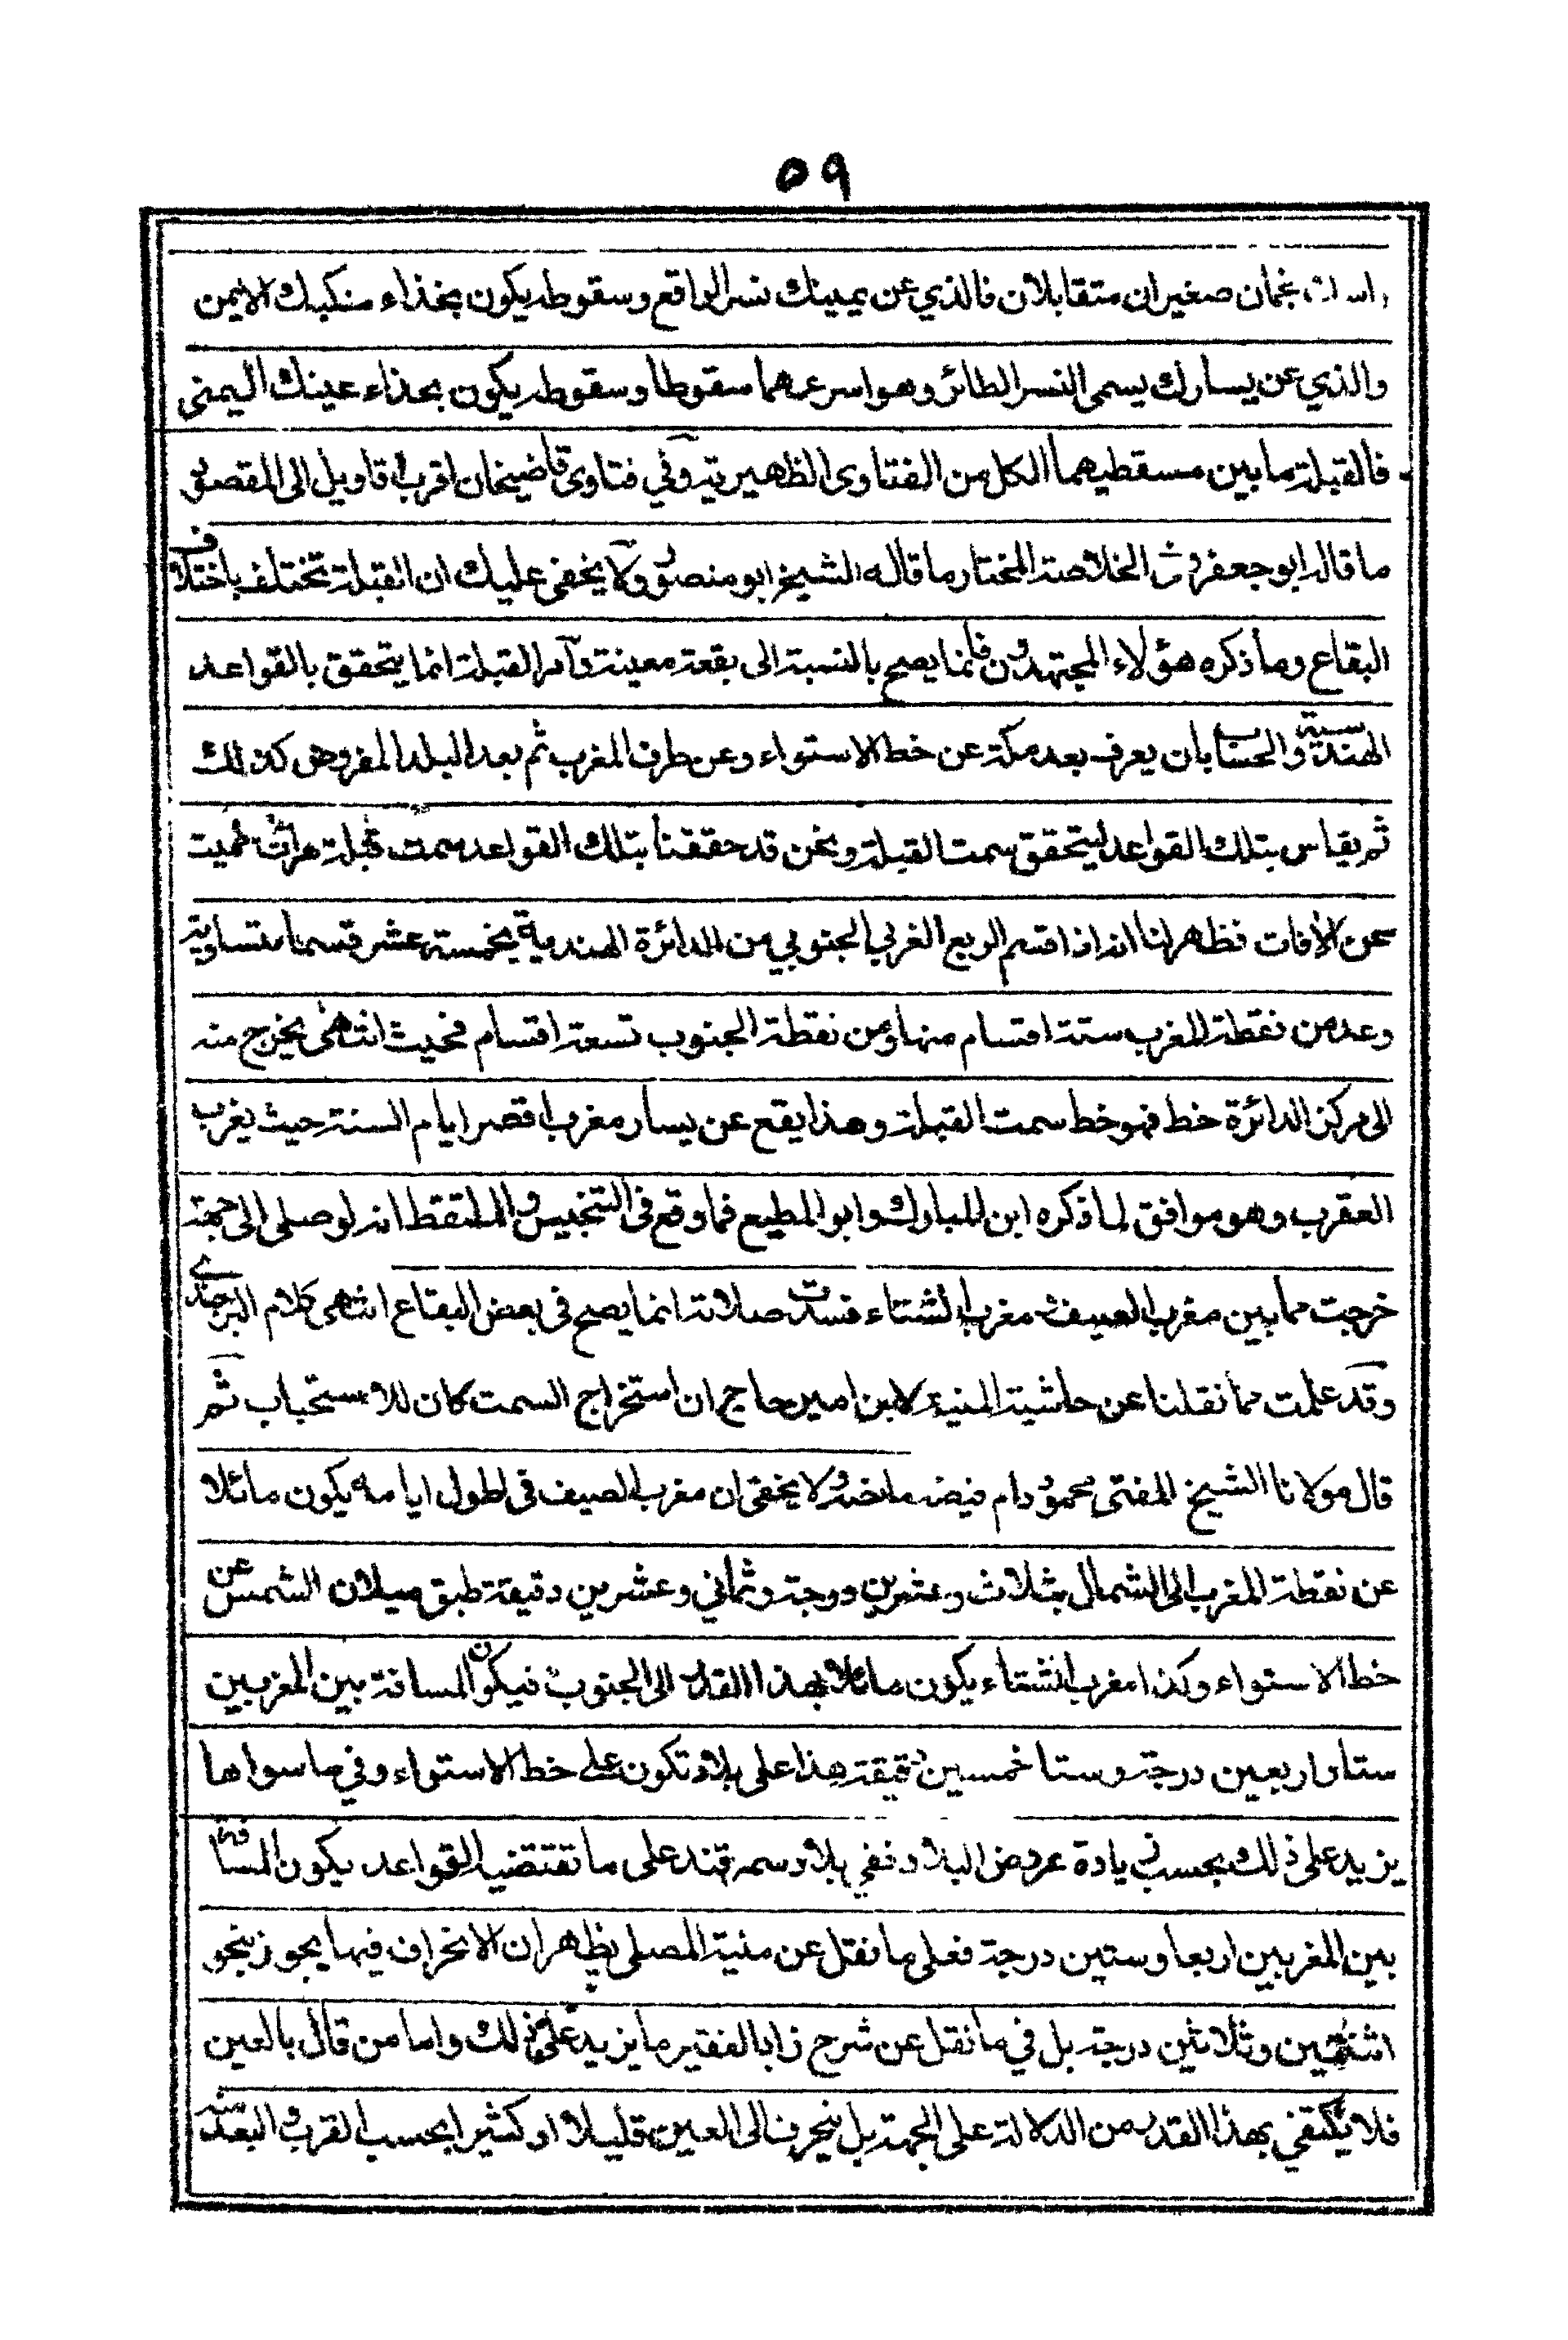 ٥٩
نجمان صغيران متقابلان فالذي عن يمينك نسر الواقع وسقوطه يكون بحذاء منكبك الايمن
والذي عن يسارك يسمى النسر الطائر وهو اسرعهما سقوطا وسقوطه يكون بحذاء عينك اليمنى
فالقبلة ما بين مسقطيهما الكل من الفتاوى الظهيرية وفي فتاوى قاضيخان اقرب الاقاويل الى المقصود
ما قاله ابو جعفر وفي الخلاصة المختار ما قاله الشيخ ابو منصور ولا يخفى عليك ان القبلة تختلف باختلاف
البقاع وما ذكره هؤلاء المجتهدون فانما يصح بالنسبة الى بقعة معينة وامر القبلة انما يتحقق بالقواعد
الهندسية والحساب بان يعرف بعد مكة عن خط الاستواء وعن طرف المغرب ثم بعد البلد المفروض كذلك
ثم يقاس بتلك القواعد ليتحقق سمت القبلة ونحن قد حققنا بتلك القواعد سمت قبلة هراة حميت
عن الافات فظهر لنا انه اذا اقسم الربع الغربي الجنوبي من الدائرة الهندية بخمسة عشر قسما متساوية
وعد من نقطة المغرب ستة اقسام منها ومن نقطة الجنوب تسعة اقسام فحيث انتهى يخرج منه
الى مركز الدائرة خط فهو خط سمت القبلة وهذا يقع عن يسار مغرب اقصر ايام السنة حيث يغرب
العقرب وهو موافق لما ذكره ابن المبارك وابو المطيع فما وقع في التجنيس والملتقط انه لو صلى الى جهة
خرجت مما بين مغرب الصيف مغرب الشتاء فسدت صلاته انما يصح في بعض البقاع انتهى كلام البرجندي
وقد علمت مما نقلنا عن حاشية المنية لابن امير حاج ان استخراج السمت كان للاستحباب ثم
قال مولانا الشيخ المفتى محمود دام فيضه لا يخفى ان مغرب الصيف في اطول ايامه يكون مائلا
عن نقطة المغرب الى الشمال بثلاث وعشرين درجة وثماني وعشرين دقيقة طبق ميلان الشمس عن
خط الاستواء وكذا مغرب الشتاء يكون مائلا بهذا القدر الى الجنوب فيكون المسافة بين المغربين
ستا واربعين درجة وستا خمسين دقيقة هذا على بلاد تكون على خط الاستواء وفي ما سواها
يزيد على ذلك بحسب زيادة عروض البلاد ففي بلاد سمرقند على ما تقتضيه القواعد يكون المسافة
بين المغربين اربعا وستين درجة فعلى ما نقل عن منية المصلى يظهر ان الانحراف فيها يجوز بنحو
اثنتين وثلاثين درجة بل في ما نقل عن شرح زاد الفقير ما يزيد على ذلك واما من قال بالعين
فلا يكتفي بهذا القدر من الدلالة على الجهة بل ينحرف الى العين قليلا او كثيرا بحسب القرب والبعد